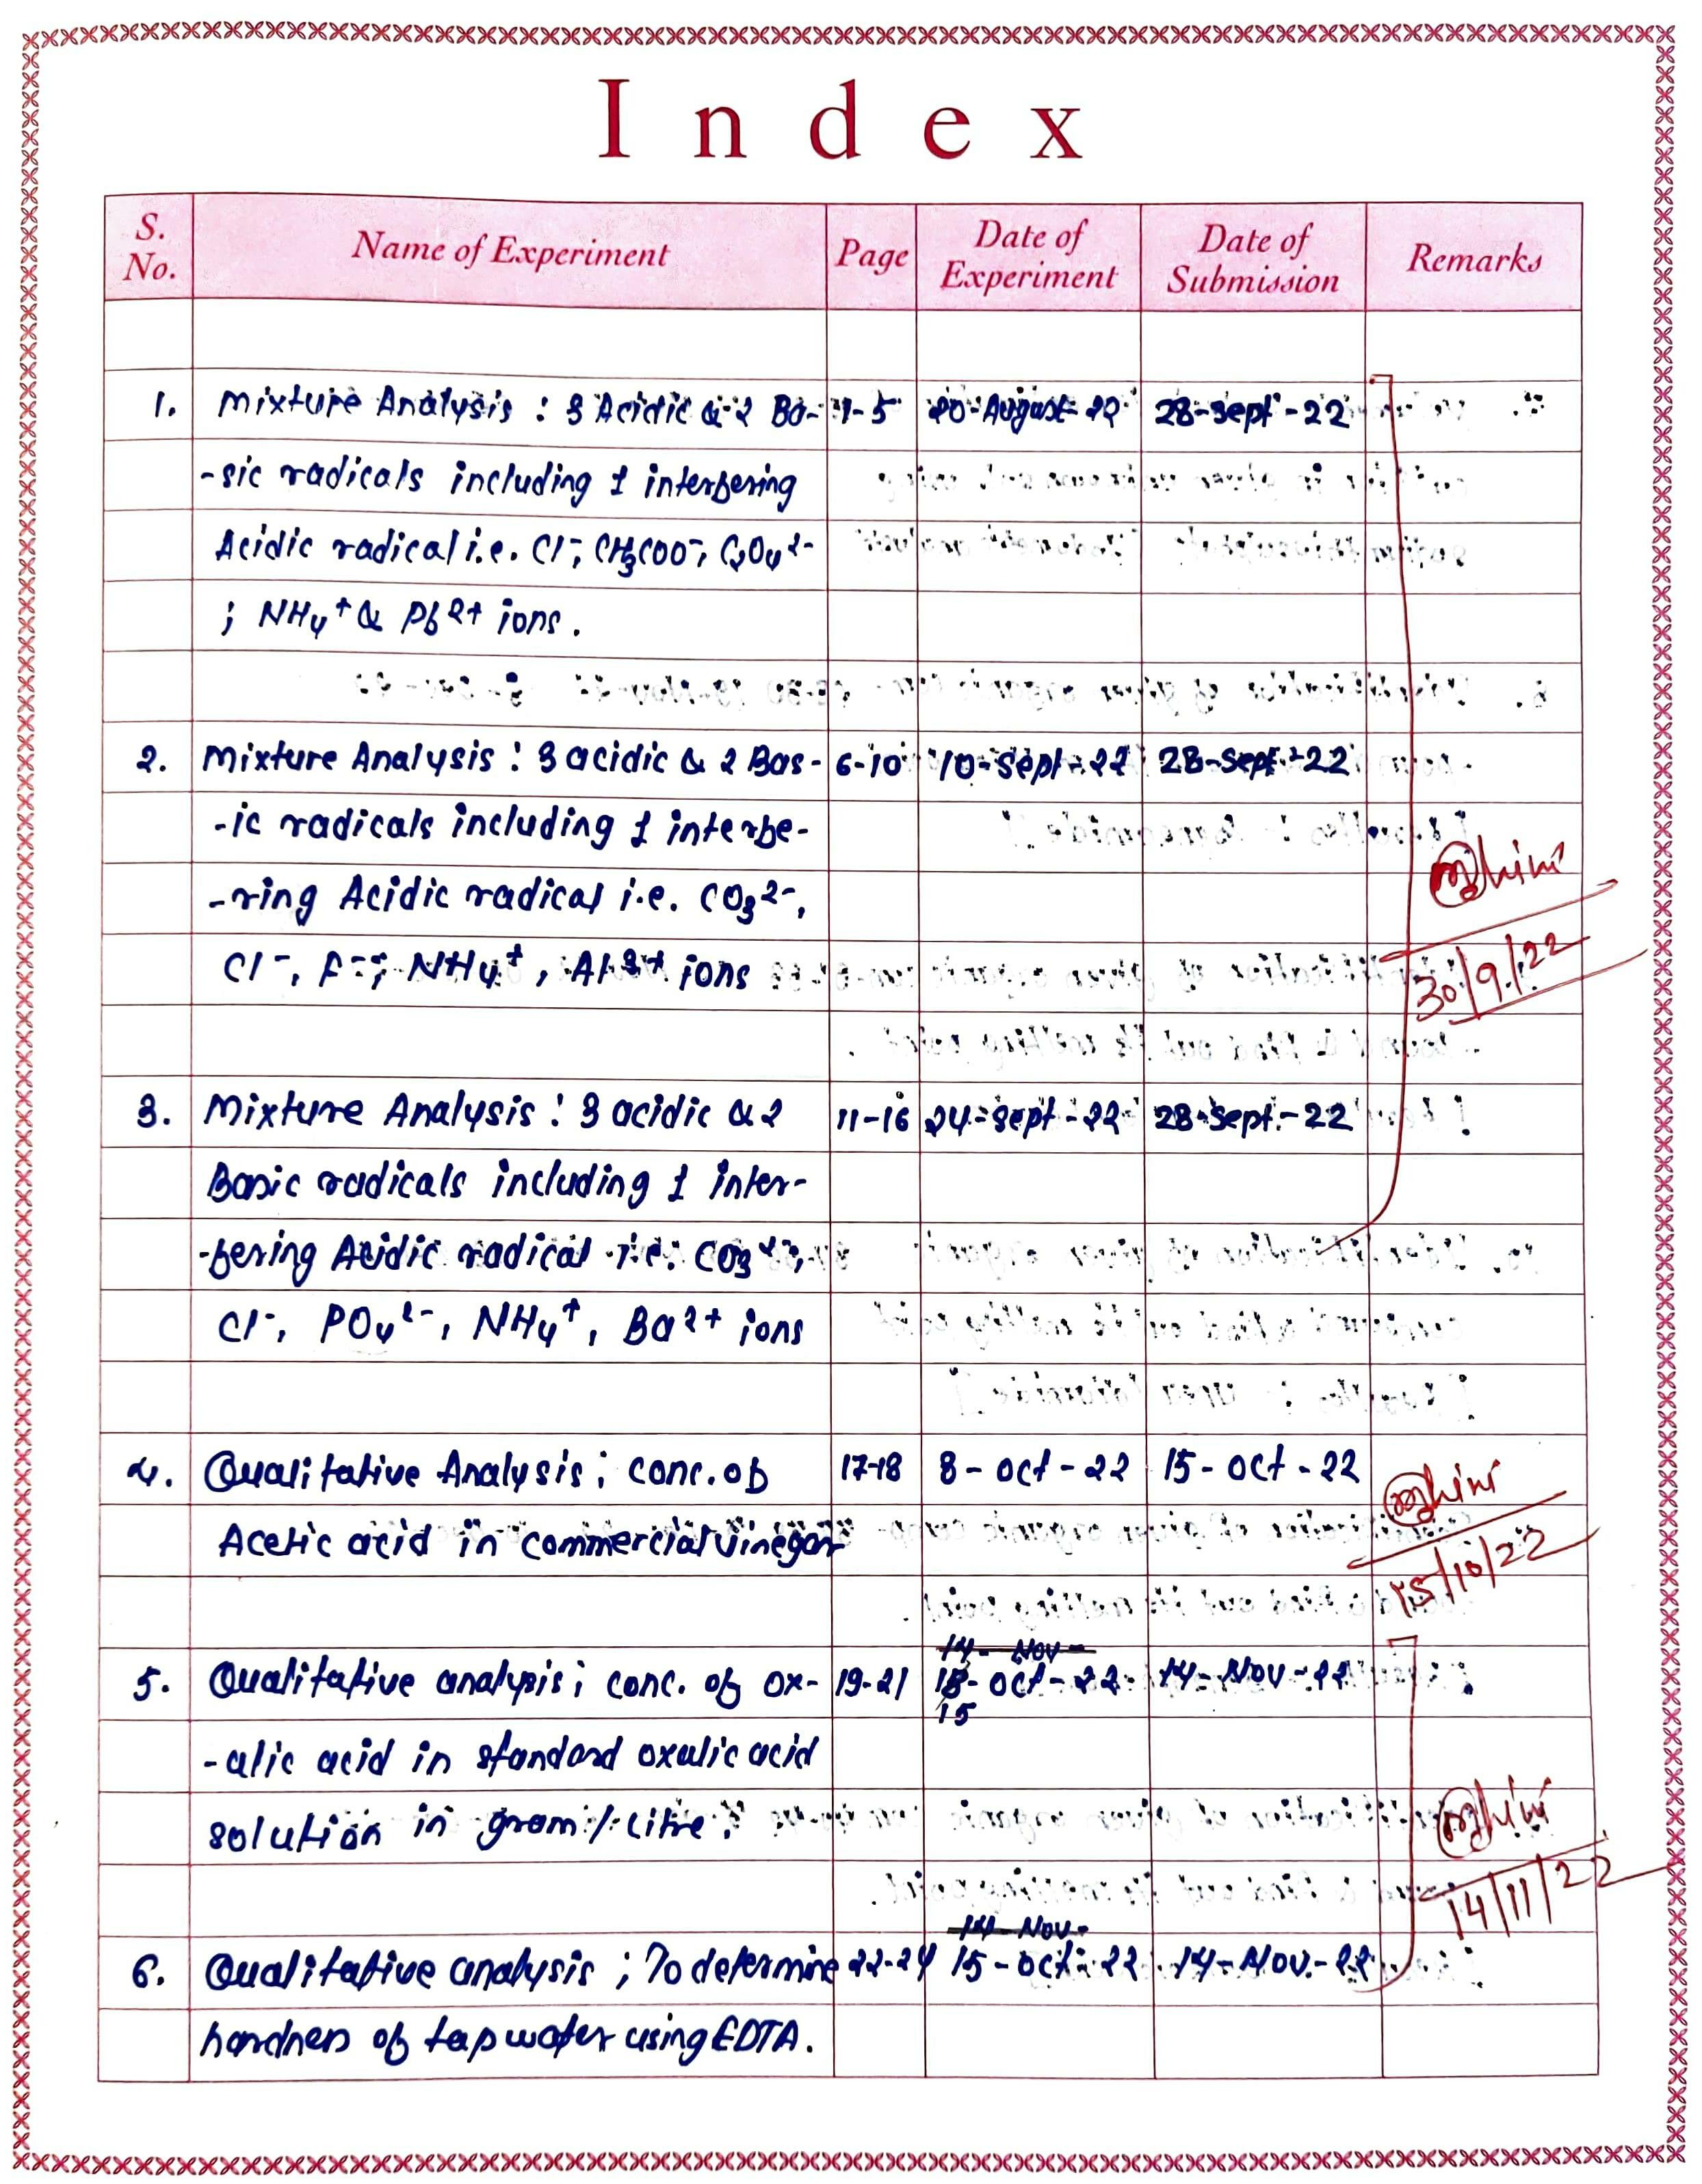 Index
S. No. Name of Experiment Page Date of Experiment Date of Submission Remarks
1. Mixture Analysis : 3 Acidic & 2 Ba- 1-5 20-August-22 28-Sept-22
-sic radicals including 1 interfering
Acidic radical i.e. Cl⁻, CH₃COO⁻, C₂O₄²⁻
; NH₄⁺ & Pb²⁺ ions.
2. Mixture Analysis : 3 acidic & 2 Bas- 6-10 10-Sept-22 28-Sept-22
-ic radicals including 1 interfe-
-ring Acidic radical i.e. CO₃²⁻,
Cl⁻, F⁻; NH₄⁺, Al³⁺ ions
30/9/22
3. Mixture Analysis : 3 acidic & 2 11-16 24-Sept-22 28-Sept-22
Basic radicals including 1 inter-
-fering Acidic radical i.e. CO₃²⁻,
Cl⁻, PO₄²⁻, NH₄⁺, Ba²⁺ ions
4. Qualitative Analysis; conc. of 17-18 8-Oct-22 15-Oct-22
Acetic acid in commercial vinegar
15/10/22
14-Nov-
5. Qualitative analysis; conc. of ox- 19-21 18-Oct-22 14-Nov-22
15
-alic acid in standard oxalic acid
solution in gram/Litre.
14/11/22
14-Nov-
6. Qualitative analysis; To determine 22-24 15-Oct-22 14-Nov-22
hardness of tap water using EDTA.